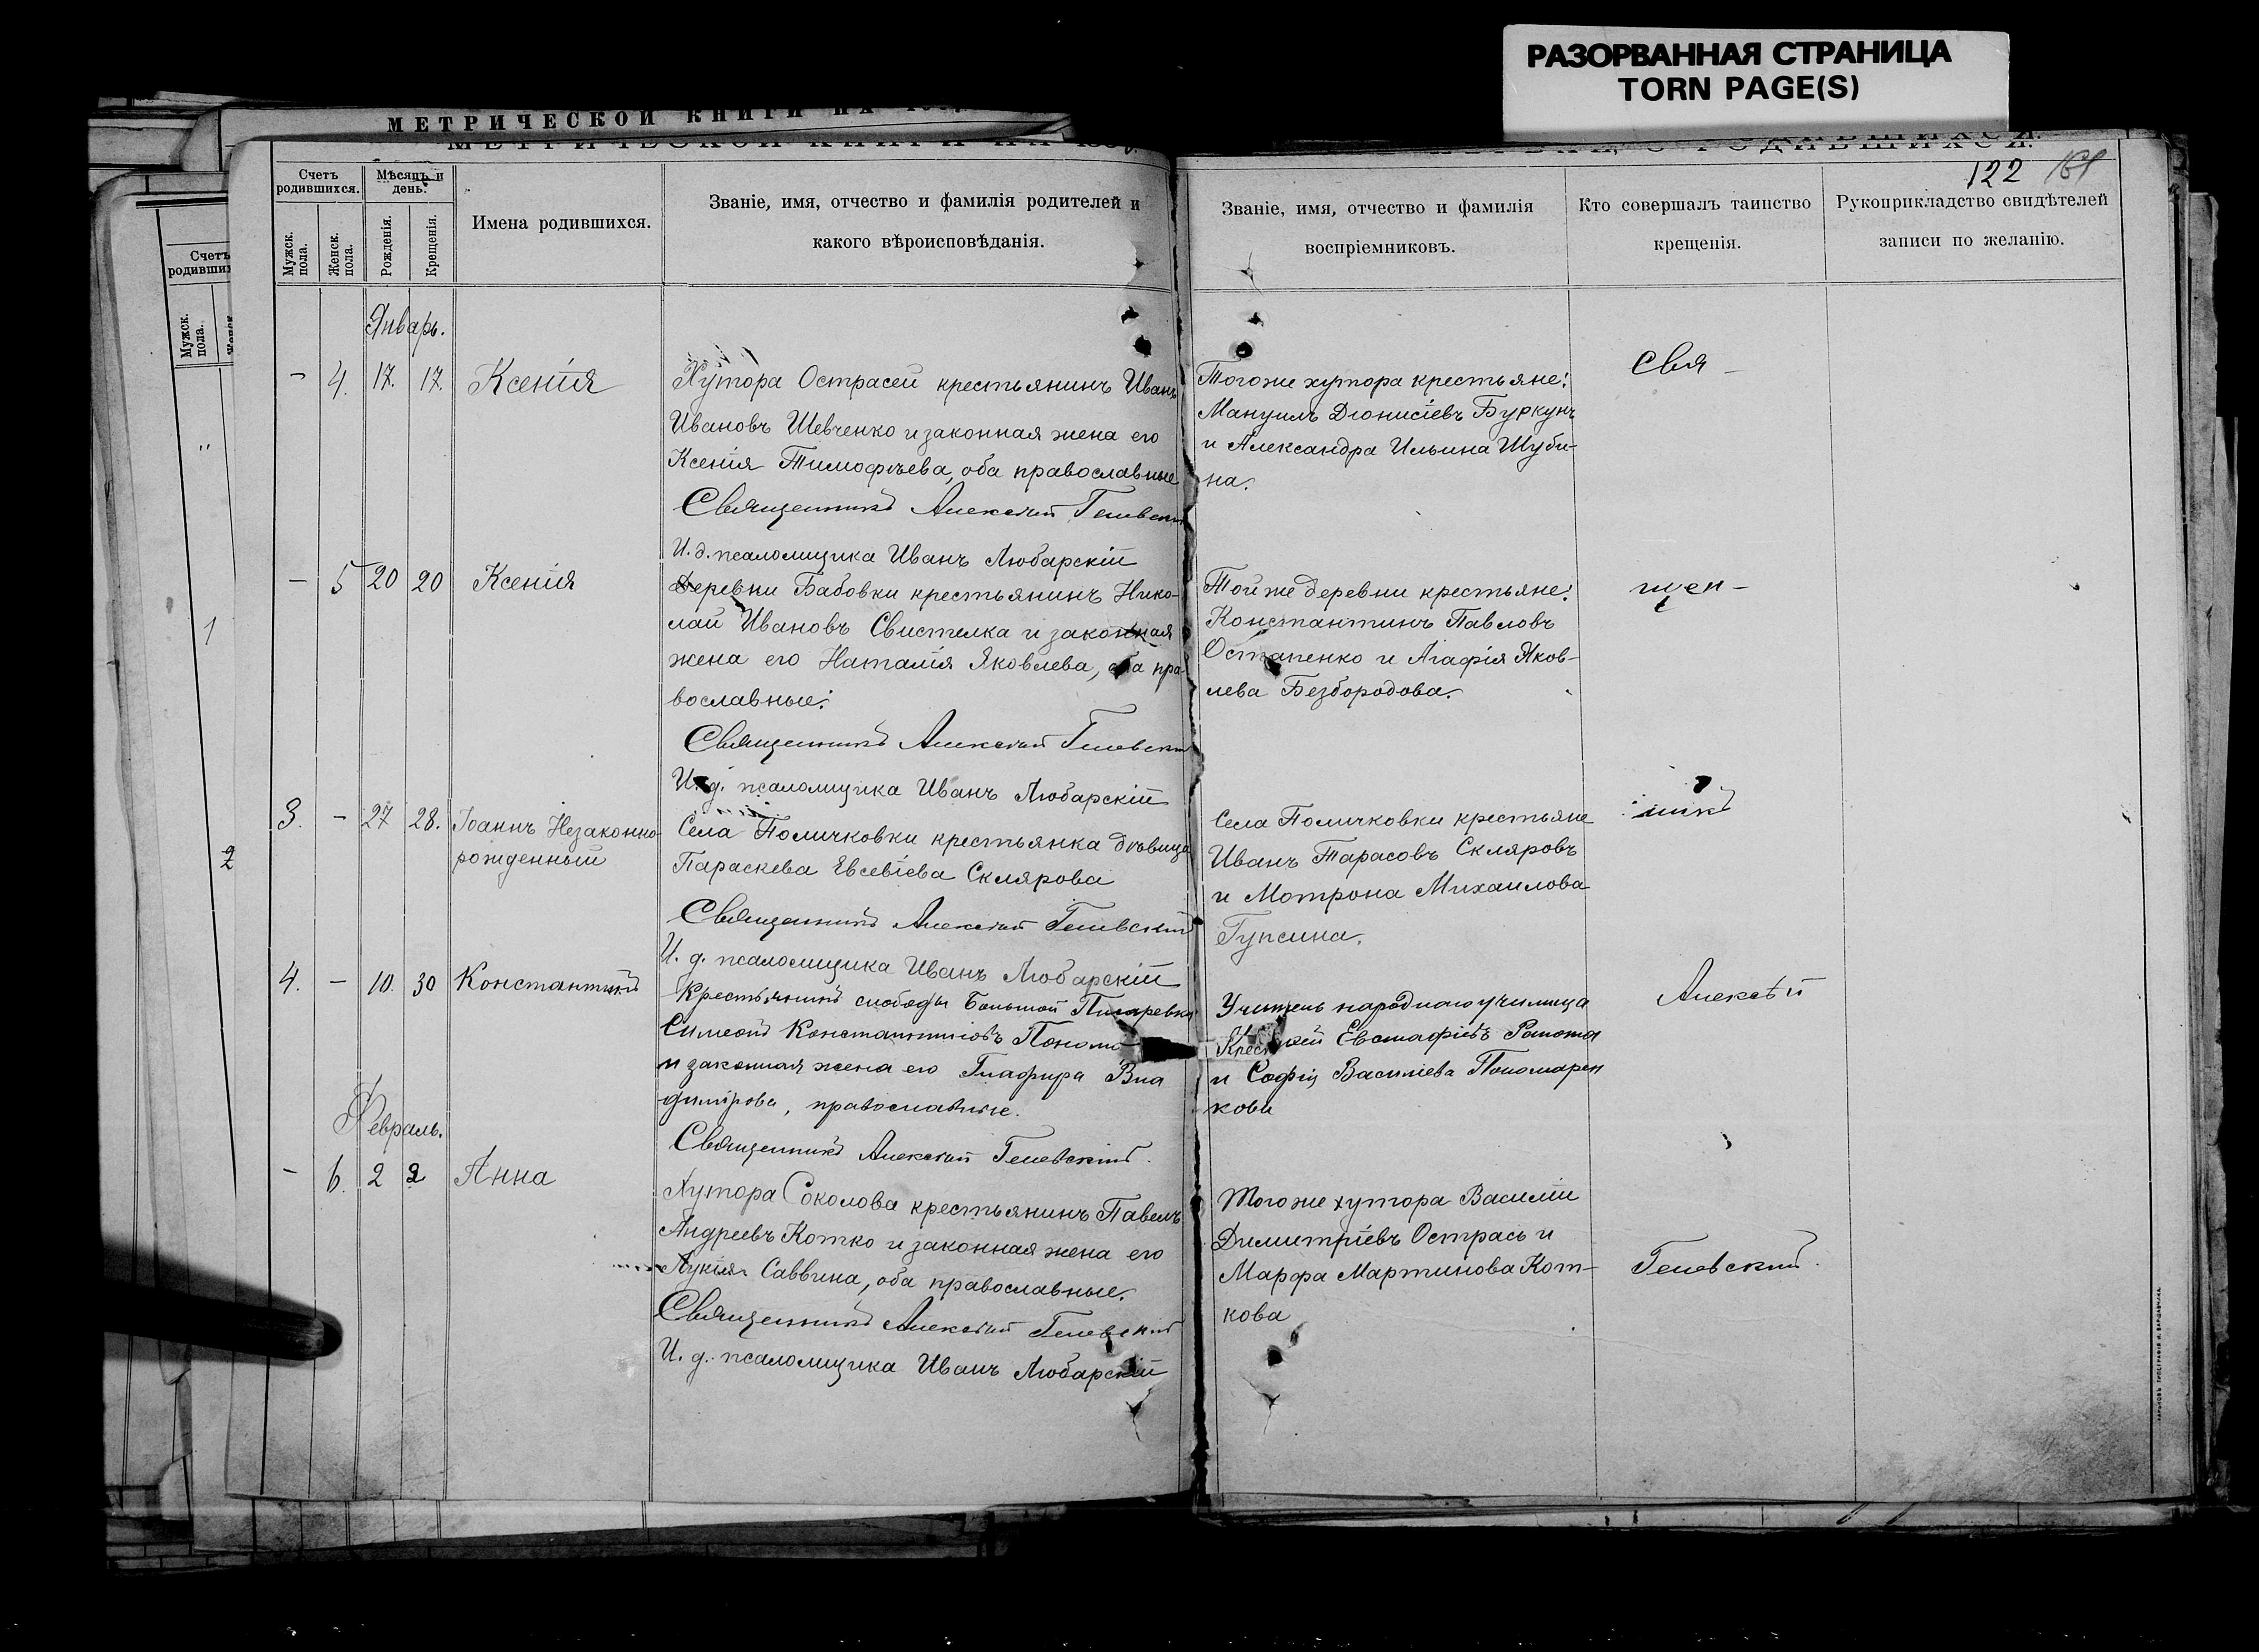 РАЗОРВАННАЯ СТРАНИЦА
TORN PAGE(S)
МЕТРИЧЕСКОЙ КНИГИ НА
МЕТРИЧЕСКОЙ КНИГИ НА
РОДИВШИХСЯ.
122
Счетъ родившихся.
Мѣсяцъ и день.
Мужск. пола.
Женск. пола.
Рожденія.
Крещенія.
Имена родившихся.
Званіе, имя, отчество и фамилія родителей и
какого вѣроисповѣданія.
Званіе, имя, отчество и фамилія
воспріемниковъ.
Кто совершалъ таинство
крещенія.
Рукоприкладство свидѣтелей
записи по желанію.
Счетъ
Мужск. пола.
1
2
Январь.
- 4. 17. 17. Ксенія
Хутора Острасей крестьянинъ Иванъ
Ивановъ Шевченко и законная жена его
Ксенія Тимофѣева, оба православные
Священникъ Алексѣй
И. д. псаломщика Иванъ Любарскій
Тогоже хутора крестьяне:
Мануилъ Діонисіевъ Буркунъ
и Александра Ильина Шуби-
на.
Свя-
- 5 20 20 Ксенія
Деревни Бабовки крестьянинъ Нико-
лай Ивановъ Свистелка и законная
жена его Наталія Яковлева, оба пра-
вославные.
Священникъ Алексѣй
И. д. псаломщика Иванъ Любарскій
Той же деревни крестьяне:
Константинъ Павловъ
Остапенко и Агафія Яков-
лева Безбородова.
щен-
3. - 27 28. Іоаннъ Незаконно-
рожденный
Села Поличковки крестьянка дѣвица
Параскева Евсевіева Склярова
Священникъ Алексѣй
И. д. псаломщика Иванъ Любарскій
Села Поличковки крестьяне
Иванъ Тарасовъ Скляровъ
и Мотрона Михаилова
никъ
4. - 10. 30 Константинъ
Крестьянинъ слободы Большой Писаревки
Симеонъ Константиновъ
и законная жена его Глафира Вла
димірова, православные.
Священникъ Алексѣй
Учитель народнаго училища
Евстафіевъ
и Софія Василіева Пономарен
кова
Алексѣй
Февраль.
- 6. 2 2 Анна
Хутора Соколова крестьянинъ Павелъ
Андреевъ Котко и законная жена его
Лукія Саввина, оба православные.
Священникъ Алексѣй
И. д. псаломщика Иванъ Любарскій
Тогоже хутора Василій
Димитріевъ Острась и
Марфа Мартинова Кот-
кова